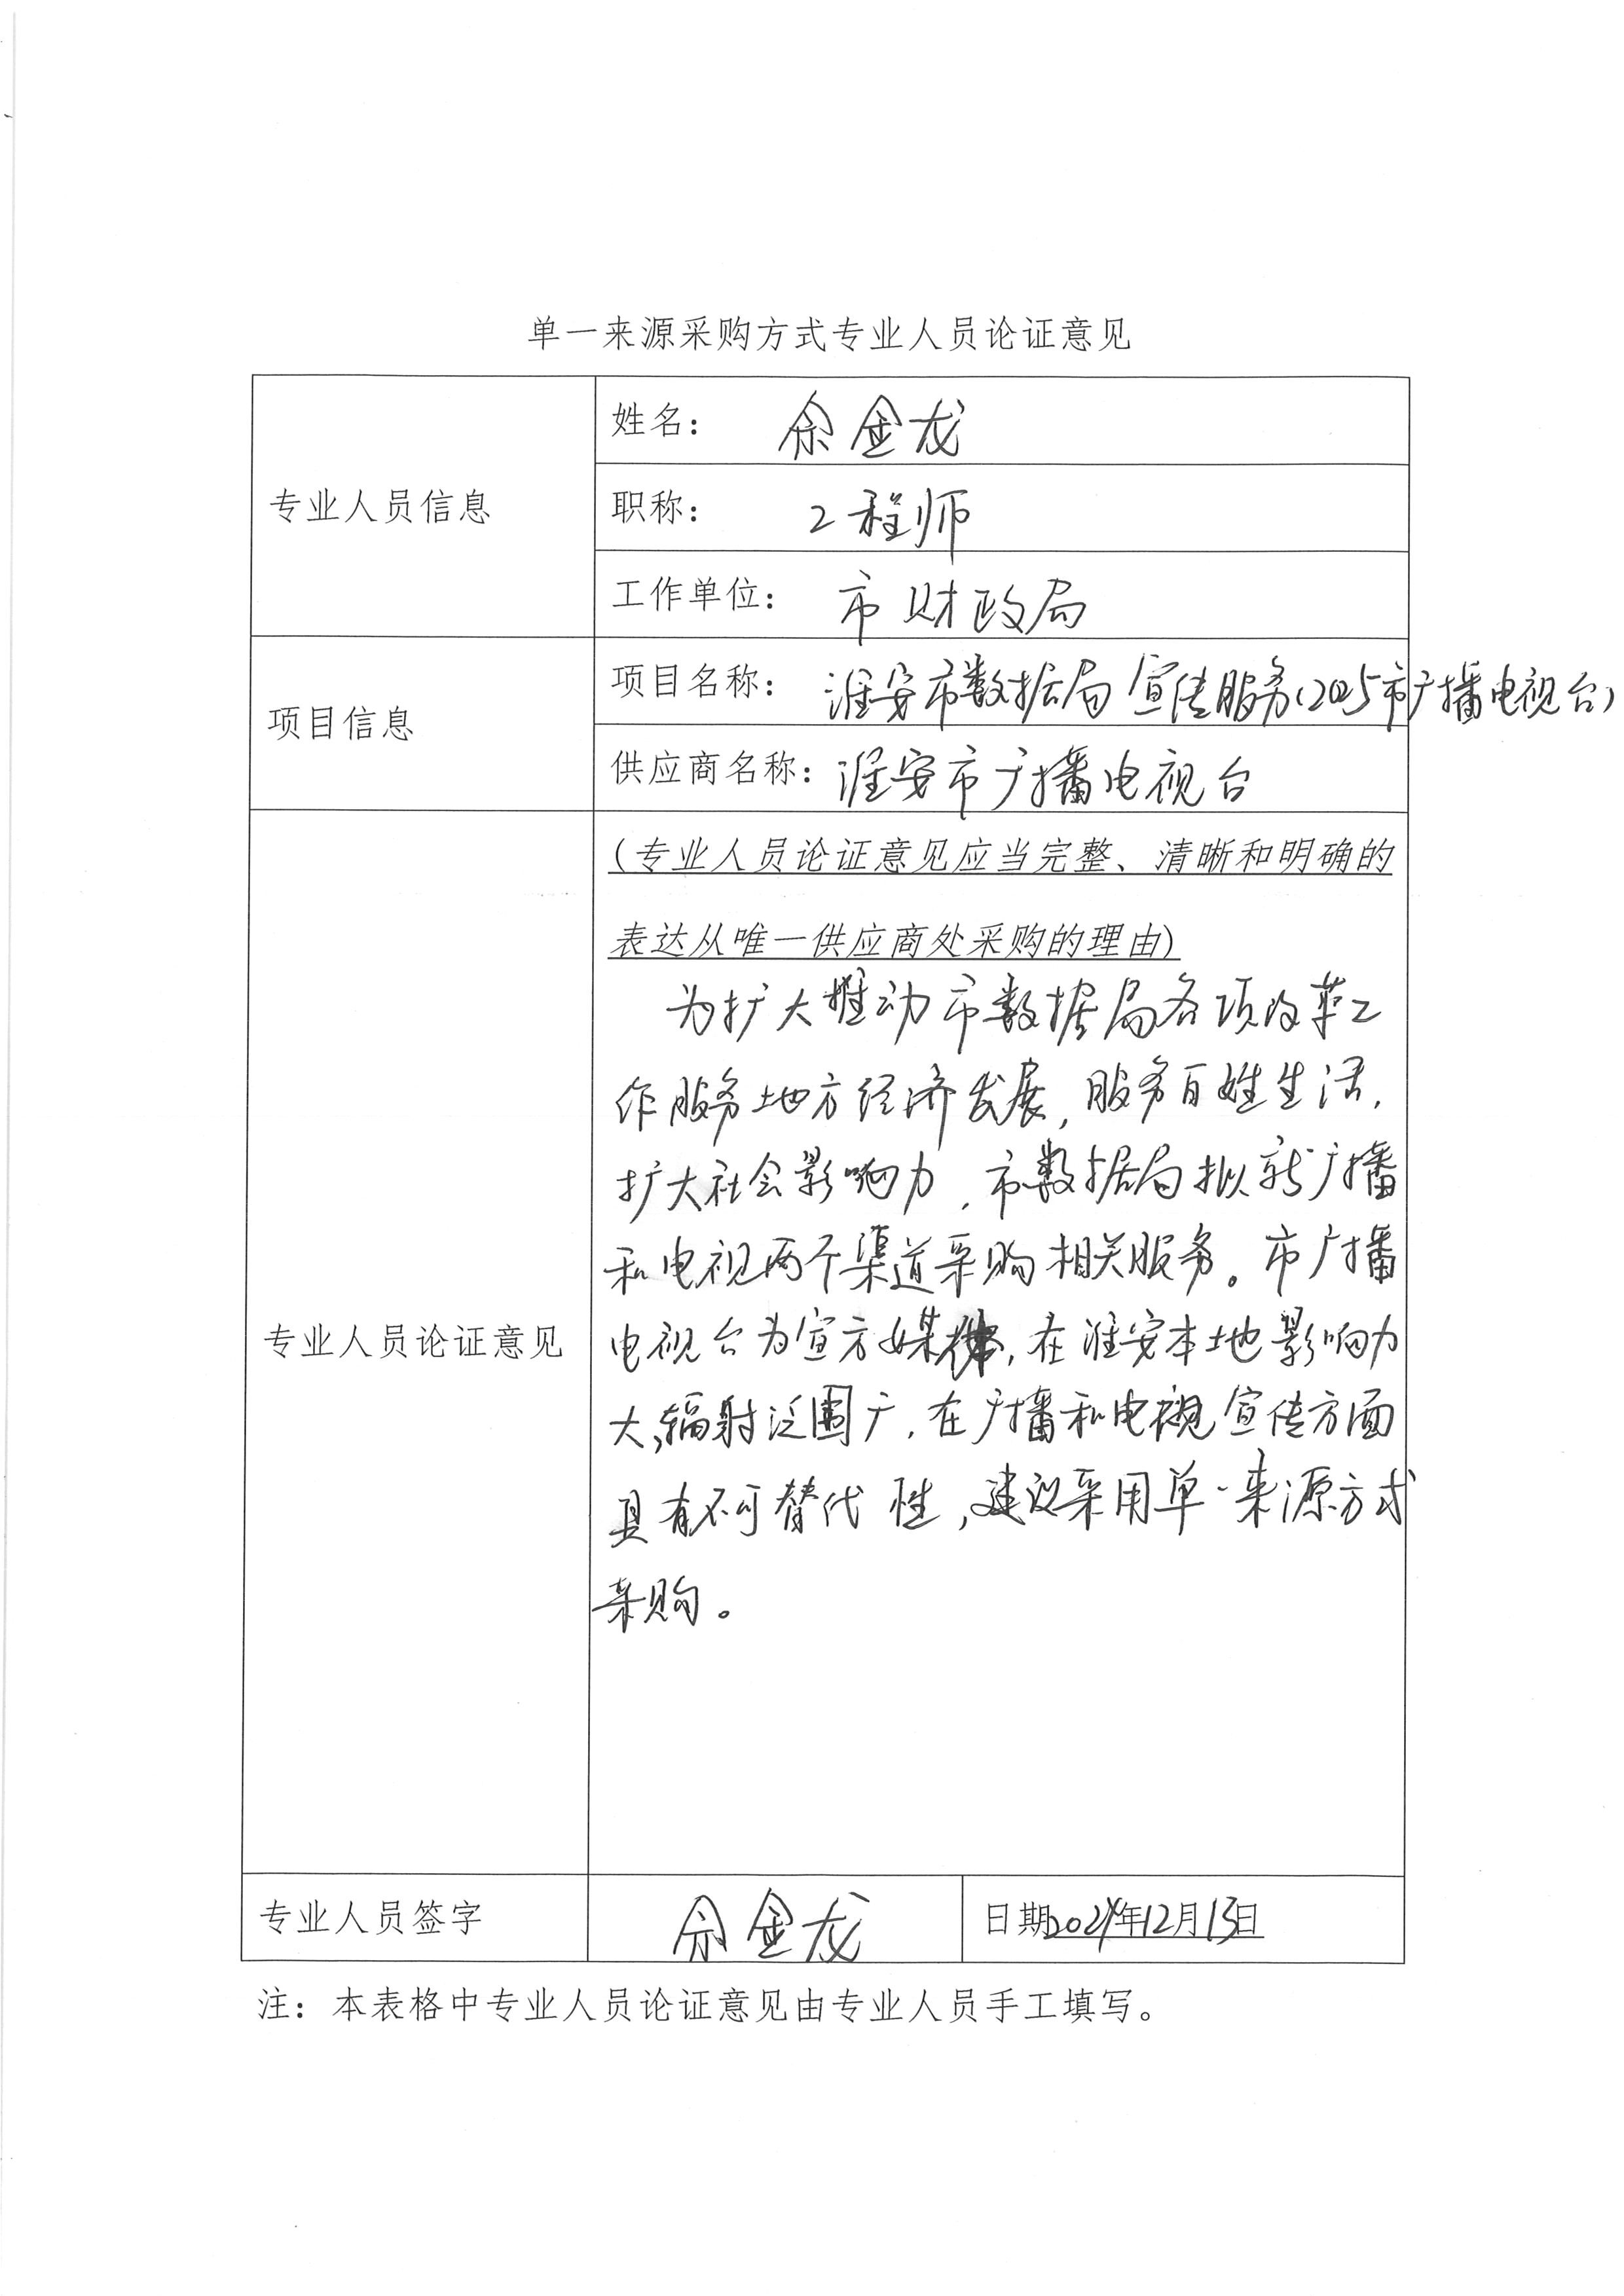 单一来源采购方式专业人员论证意见
专业人员信息
姓名： 余金龙
职称： 工程师
工作单位： 市财政局
项目信息
项目名称： 淮安市数据局宣传服务(2025市广播电视台)
供应商名称：淮安市广播电视台
专业人员论证意见
(专业人员论证意见应当完整、清晰和明确的
表达从唯一供应商处采购的理由)
为扩大推动市数据局各项改革工
作服务地方经济发展，服务百姓生活，
扩大社会影响力，市数据局拟就广播
和电视两个渠道采购相关服务。市广播
电视台为官方媒体，在淮安本地影响力
大，辐射泛围广，在广播和电视宣传方面
具有不可替代性，建议采用单一来源方式
采购。
专业人员签字
余金龙
日期2024年12月13日
注：本表格中专业人员论证意见由专业人员手工填写。